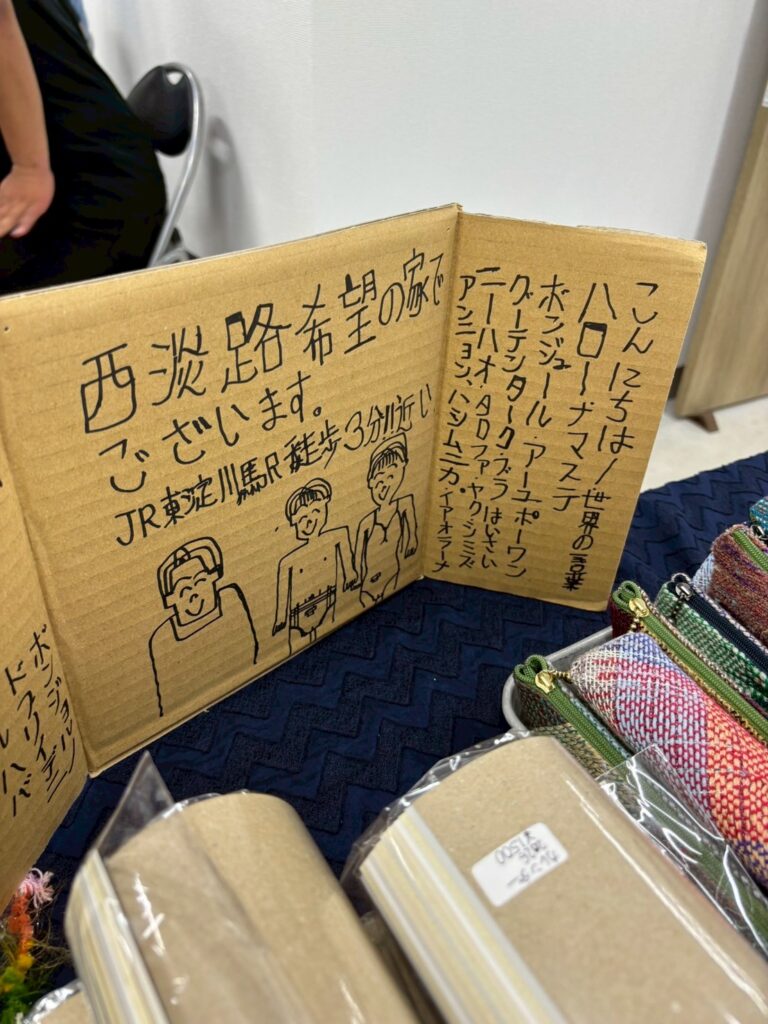 西淡路希望の家で
ございます。
JR東淀川駅徒歩3分川近い
こんにちは!世界の言葉
ハロー・ナマステ
ボンジュール・アーユボーワン
グーテンターク・ブラ はいさい
ニーハオ・タロファ・ヤクシミズ
アンニョン、ハシムニカ。イアオラーナ
ボンジョルノ
ドブリイデニ
ルハバ
¥1500